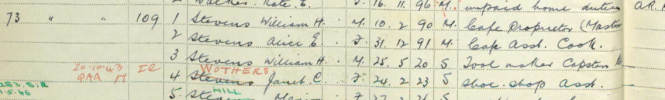 Walker Kate E. F. 16.11.96 M. unpaid home duties A.R.
73 " 109 1 Stevens William H. M. 10.2.90 M. Cafe Proprietor (Master
2 Stevens Alice E. F. 31.12.91 M. Cafe Asst. Cook.
3 Stevens William H. M. 25.5.20 S Tool maker Capstan
20.10.43 WOTHERS
4 Stevens Janet C. F. 24.2.23 S Shoe Shop Asst.
HILL
5